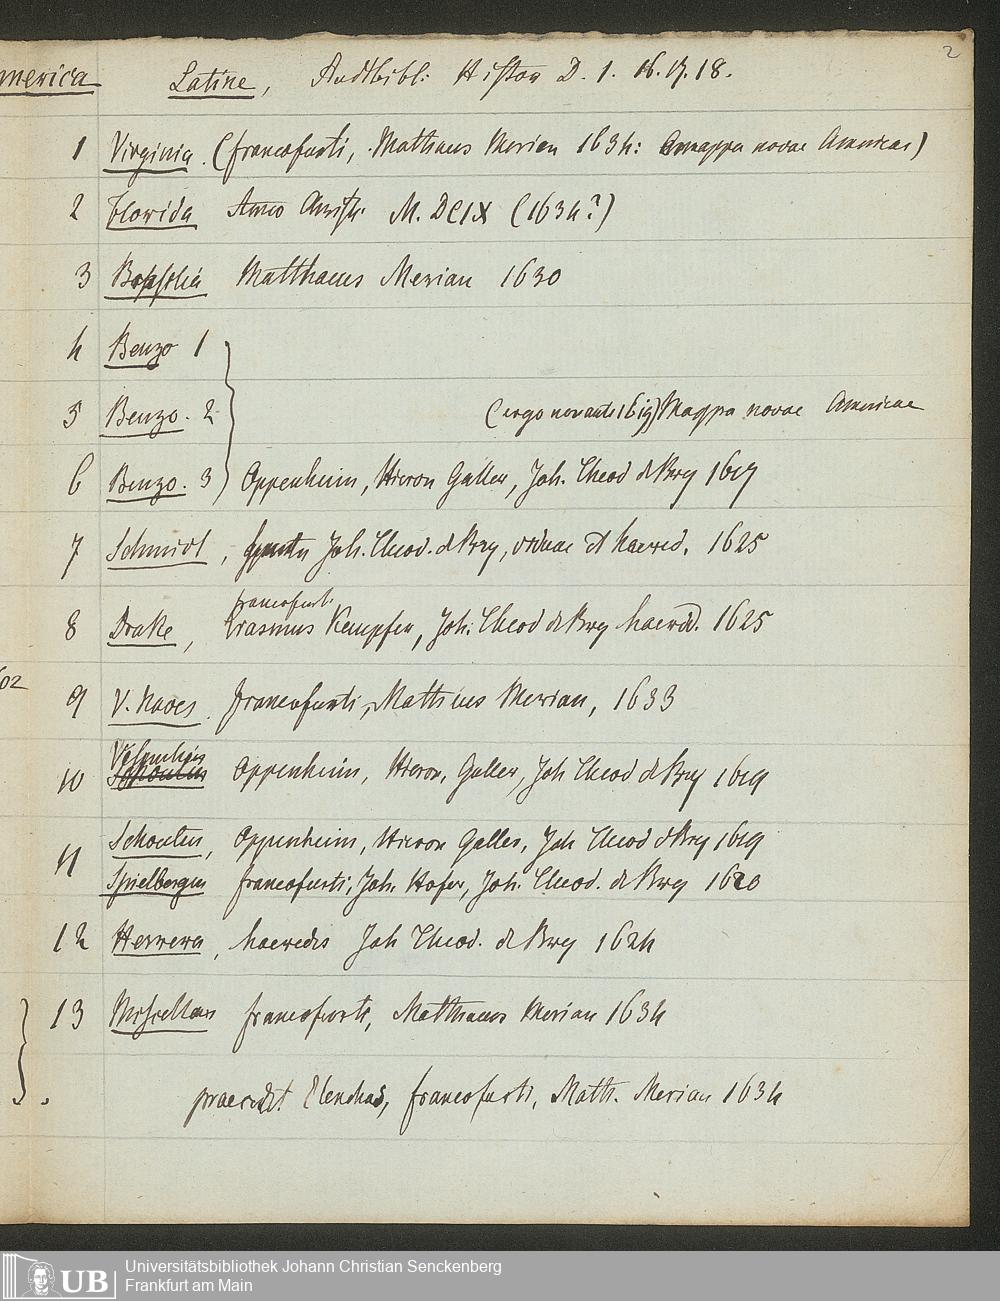 2
merica Latine, Stadtbibl: Histor D. 1. 16. 17. 18.
1 Virginia. (francofurti, Matthaeus Merian 1634: mappa novae Americae)
2 Florida Anno Christi M. DCIX (1634?)
3 Brasilia Matthaeus Merian 1630
4 Benzo 1
5 Benzo. 2 (ergo non ante 1617) Mappa novae Americae
6 Benzo. 3 Oppenheim, Hieron Galler, Joh. Theod de Bry 1617
7 Schmidt, Joh. Theod. de Bry, viduae et haered. 1625
francofurti
8 Drake, Erasmus Kempfer, Joh. Theod de Bry haered. 1625
602
9 V. Naves. francofurti, Matthaeus Merian, 1633
Vespucius
10 Oppenheim, Hieron, Galler, Joh Theod de Bry 1619
11 Schouten, Oppenheim, Hieron Galler, Joh Theod de Bry 1619
Spielbergen francofurti, Joh. Hofer, Joh. Theod. de Bry 1620
12 Herrera, haeredes Joh Theod. de Bry 1624
13 Miscellan francofurti, Matthaeus Merian 1634
praecedit Elenchus, francofurti, Matth. Merian 1634
UB Universitätsbibliothek Johann Christian Senckenberg
Frankfurt am Main